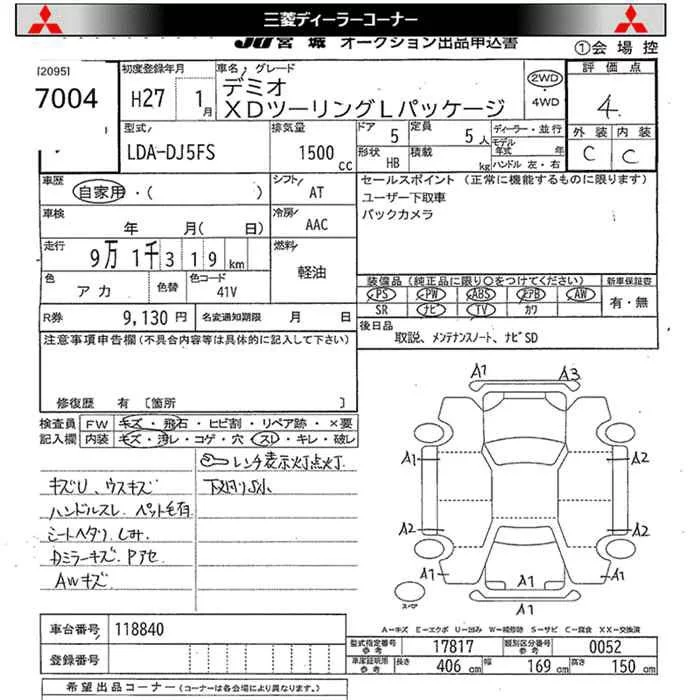 三菱ディーラーコーナー
JU宮城 オークション出品申込書
①会場控
[20951
7004
初度登録年月
H27 1月
車名/グレード
デミオ
XDツーリングLパッケージ
2WD
・
4WD
評価点
4.
外装 内装
C C
型式/
LDA-DJ5FS
排気量
1500cc
ドア 5 定員 5人
形状 HB 積載 kg
ディーラー・並行
モデル年式 年
ハンドル 左・右
車歴
自家用・( )
シフト/
AT
セールスポイント (正常に機能するものに限ります)
ユーザー下取車
バックカメラ
車検
年 月( 日)
冷房/
AAC
走行
9万 1千 3 1 9 km
燃料/
軽油
色
アカ
色替
色コード
41V
装備品(純正品に限り○をつけてください)
新車保証書
PS PW ABS エアB AW
SR ナビ TV カワ
有・無
R券 9,130円 名変通知期限 月 日
後日品
取説、メンテナンスノート、ナビSD
注意事項申告欄(不具合内容等は具体的に記入して下さい)
修復歴 有〔箇所 〕
検査員記入欄
FW キズ・飛石・ヒビ割・リペア跡・×要
内装 キズ・汚レ・コゲ・穴・スレ・キレ・破レ
レンチ表示灯点灯
キズU、ウスキズ
下回りS小
ハンドルスレ ペット毛有
シートヘタリ、シミ
Dミラーキズ Pアセ
AWキズ
A1 A3
A1 A2
A2 A2
A1 A1 A1
A1
スペア
A-キズ E-エクボ U-凹み W-補修跡 S-サビ C-腐食 XX-交換済
車台番号 118840
登録番号
型式指定番号参考 17817 類別区分番号参考 0052
車庫証明用参考 長さ 406cm 幅 169cm 高さ 150cm
希望出品コーナー(コーナーは各会場により異なります。)